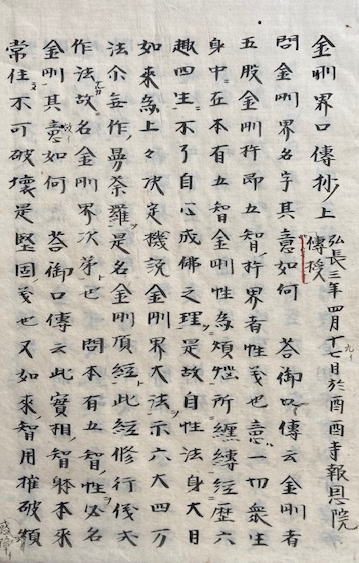 金剛界口傳抄上
弘長三年四月十七日於酉酉寺報恩院
九イ
傳授
問金剛界名字其意如何 答御口傳云金剛者
五股金剛杵即五智杵界者性義也意一切衆生
身中本有五智金剛性為煩惱所纏縛經歷六
趣四生不了自心成佛之理是故自性法身大日
如來為上々決定機說金剛界大法示六大四万
法尒無作曼荼羅是名金剛頂經此經修行儀式
作法故名金剛界次第也 問本有五智性名
金剛其意如何 答御口傳云此實相智躰本來
常住不可破壞是堅固義也又如來智用摧破煩